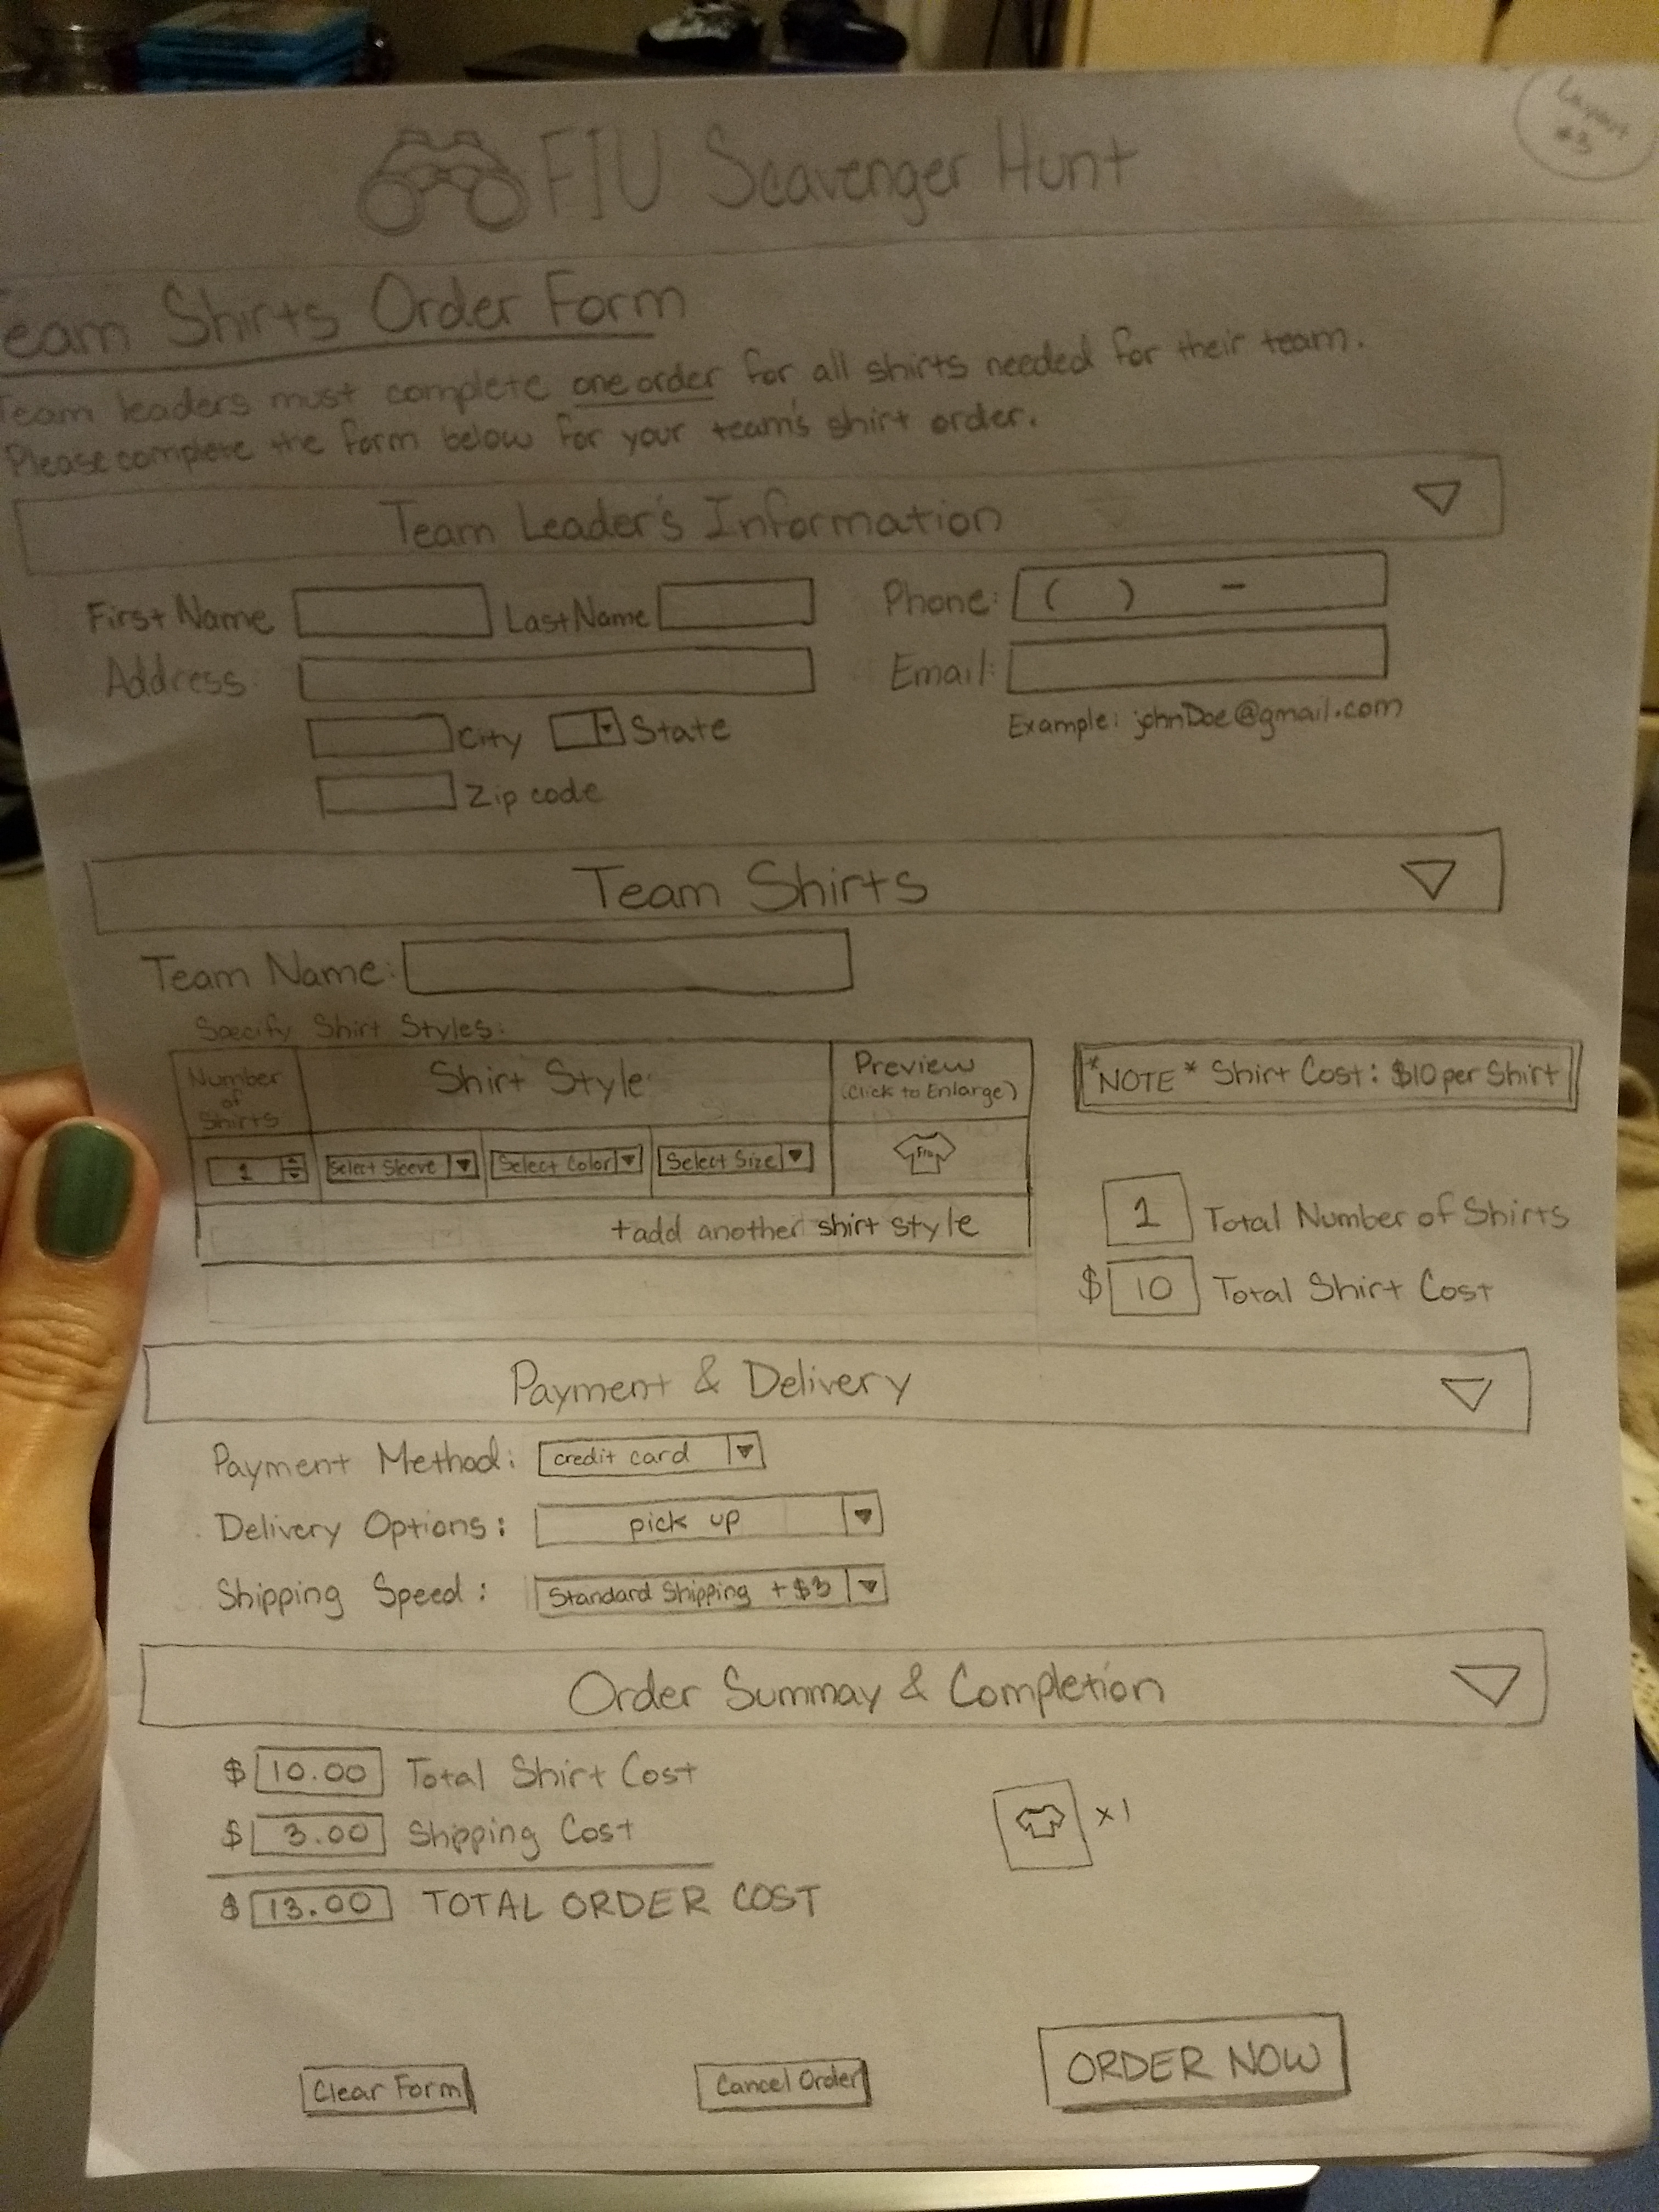 Layout
#3
FIU Scavenger Hunt
eam Shirts Order Form
Team leaders must complete one order for all shirts needed for their team.
Please complete the form below for your team's shirt order.
Team Leader's Information
First Name Last Name Phone: ( ) -
Address: Email:
City State Example: johnDoe@gmail.com
Zip code
Team Shirts
Team Name:
Specify Shirt Styles:
Number of Shirts
Shirt Style
Preview
(Click to Enlarge)
*NOTE* Shirt Cost: $10 per Shirt
1 Select Sleeve Select Color Select Size FIU
+add another shirt style
1 Total Number of Shirts
$ 10 Total Shirt Cost
Payment & Delivery
Payment Method: credit card
Delivery Options: pick up
Shipping Speed: Standard Shipping +$3
Order Summay & Completion
$ 10.00 Total Shirt Cost
$ 3.00 Shipping Cost
x1
$ 13.00 TOTAL ORDER COST
Clear Form Cancel Order ORDER NOW